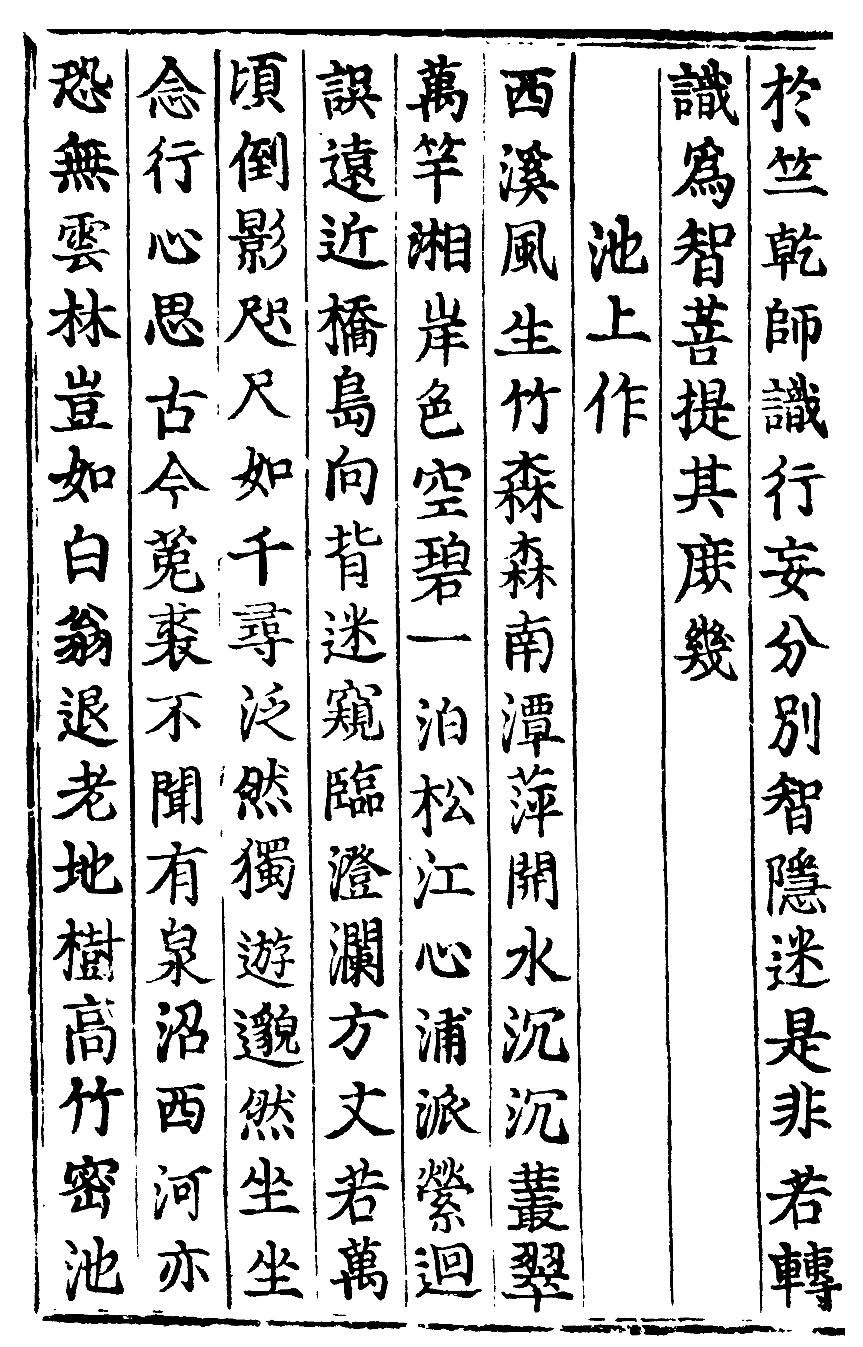 於竺乾師識行妄分別智隱迷是非若轉
識爲智菩提其庻幾
池上作
西溪風生竹森森南潭萍開水沉沉叢翠
萬竿湘岸色空碧一泊松江心浦派縈迴
誤遠近橋島向背迷窺臨澄瀾方丈若萬
頃倒影咫尺如千尋泛然獨遊邈然坐坐
念行心思古今菟裘不聞有泉沼西河亦
恐無雲林豈如白翁退老地樹高竹密池